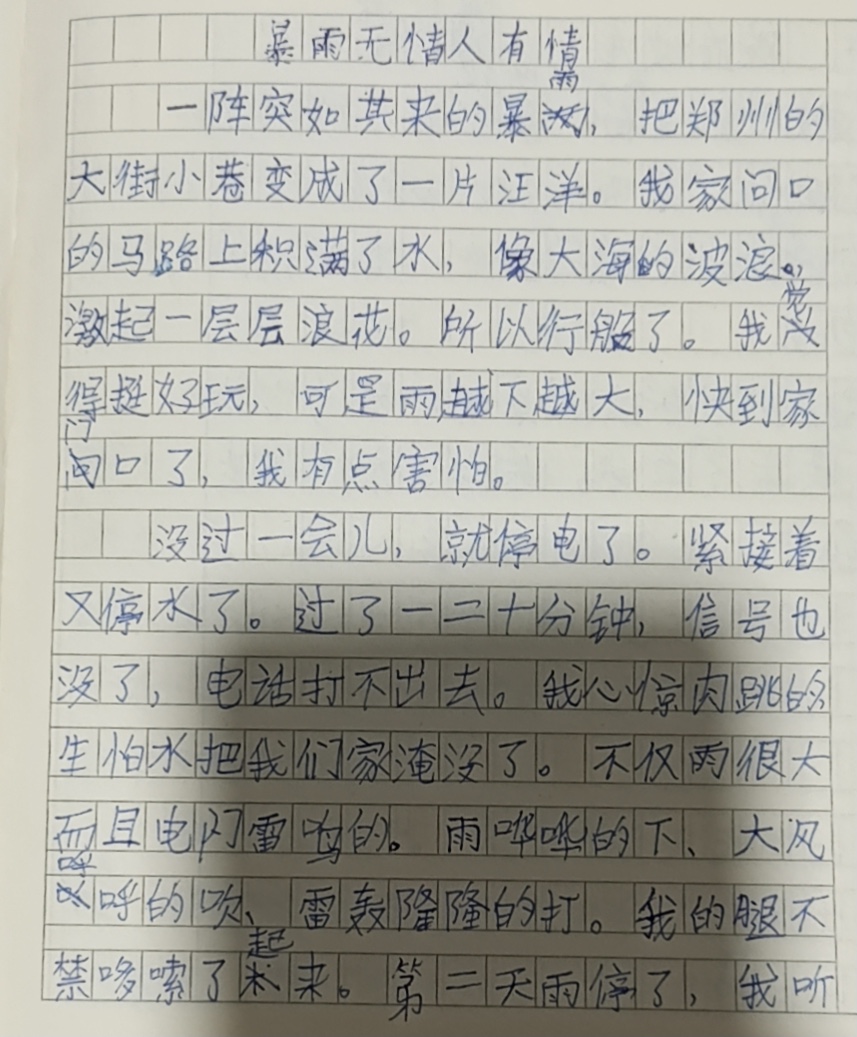 暴雨无情人有情
一阵突如其来的暴雨，把郑州的
大街小巷变成了一片汪洋。我家问口
的马路上积满了水，像大海的波浪。，
激起一层层浪花。所以行船了。我觉
得挺好玩，可是雨越下越大，快到家
门口了，我有点害怕。
没过一会儿，就停电了。紧接着
又停水了。过了一二十分钟，信号也
没了，电话打不出去。我心惊肉跳的
生怕水把我们家淹没了。不仅雨很大
而且电闪雷鸣的。雨哗哗的下、大风
呼呼的吹、雷轰隆隆的打。我的腿不
禁哆嗦了起来。第二天雨停了，我听